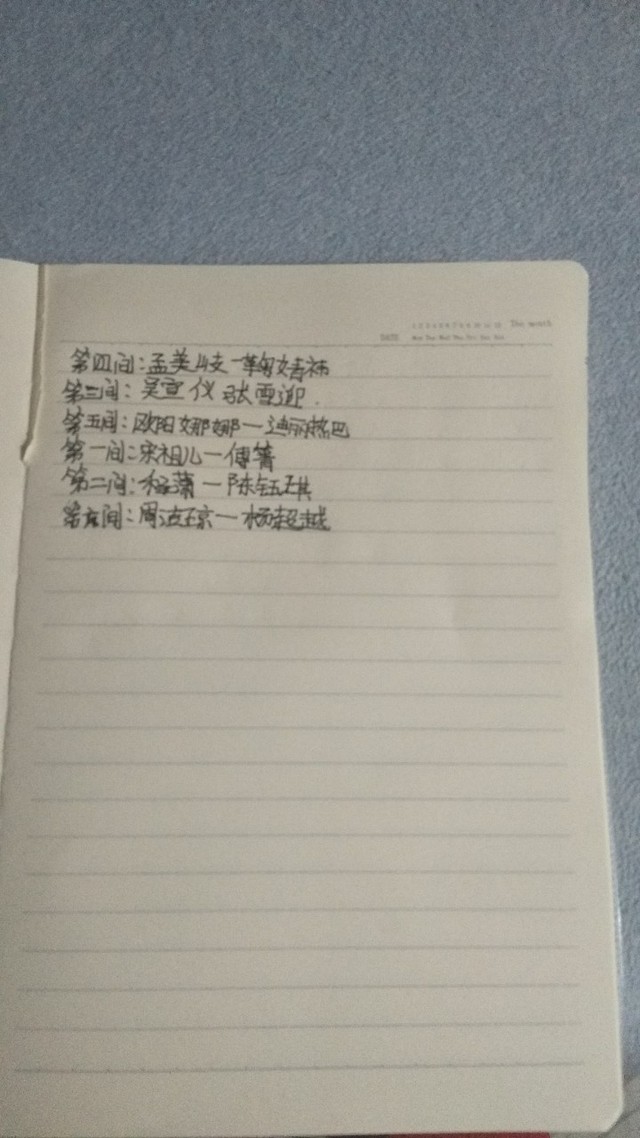 DATE
第四间:孟美岐一鞠婧祎
第三间:吴宣仪 张雪迎.
第五间:欧阳娜娜一迪丽热巴
第一间:宋祖儿一傅箐
第二间:杨蒲一陈钰琪
第六间:周洁琼一杨超越